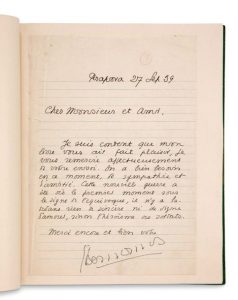 27 Sep 39
Cher Monsieur et Ami,
Je suis content que mon
livre vous ait fait plaisir. Je
vous remercie affectueusement
de votre envoi. On a bien besoin
en ce moment, de sympathie et
d'amitié. Cette nouvelle guerre a
été dès le premier moment sous
le signe de l'équivoque, il n'y a là-
dedans rien de sincère ni de digne
d'amour, sinon l'héroïsme des soldats.
Merci encore et bien vôtre